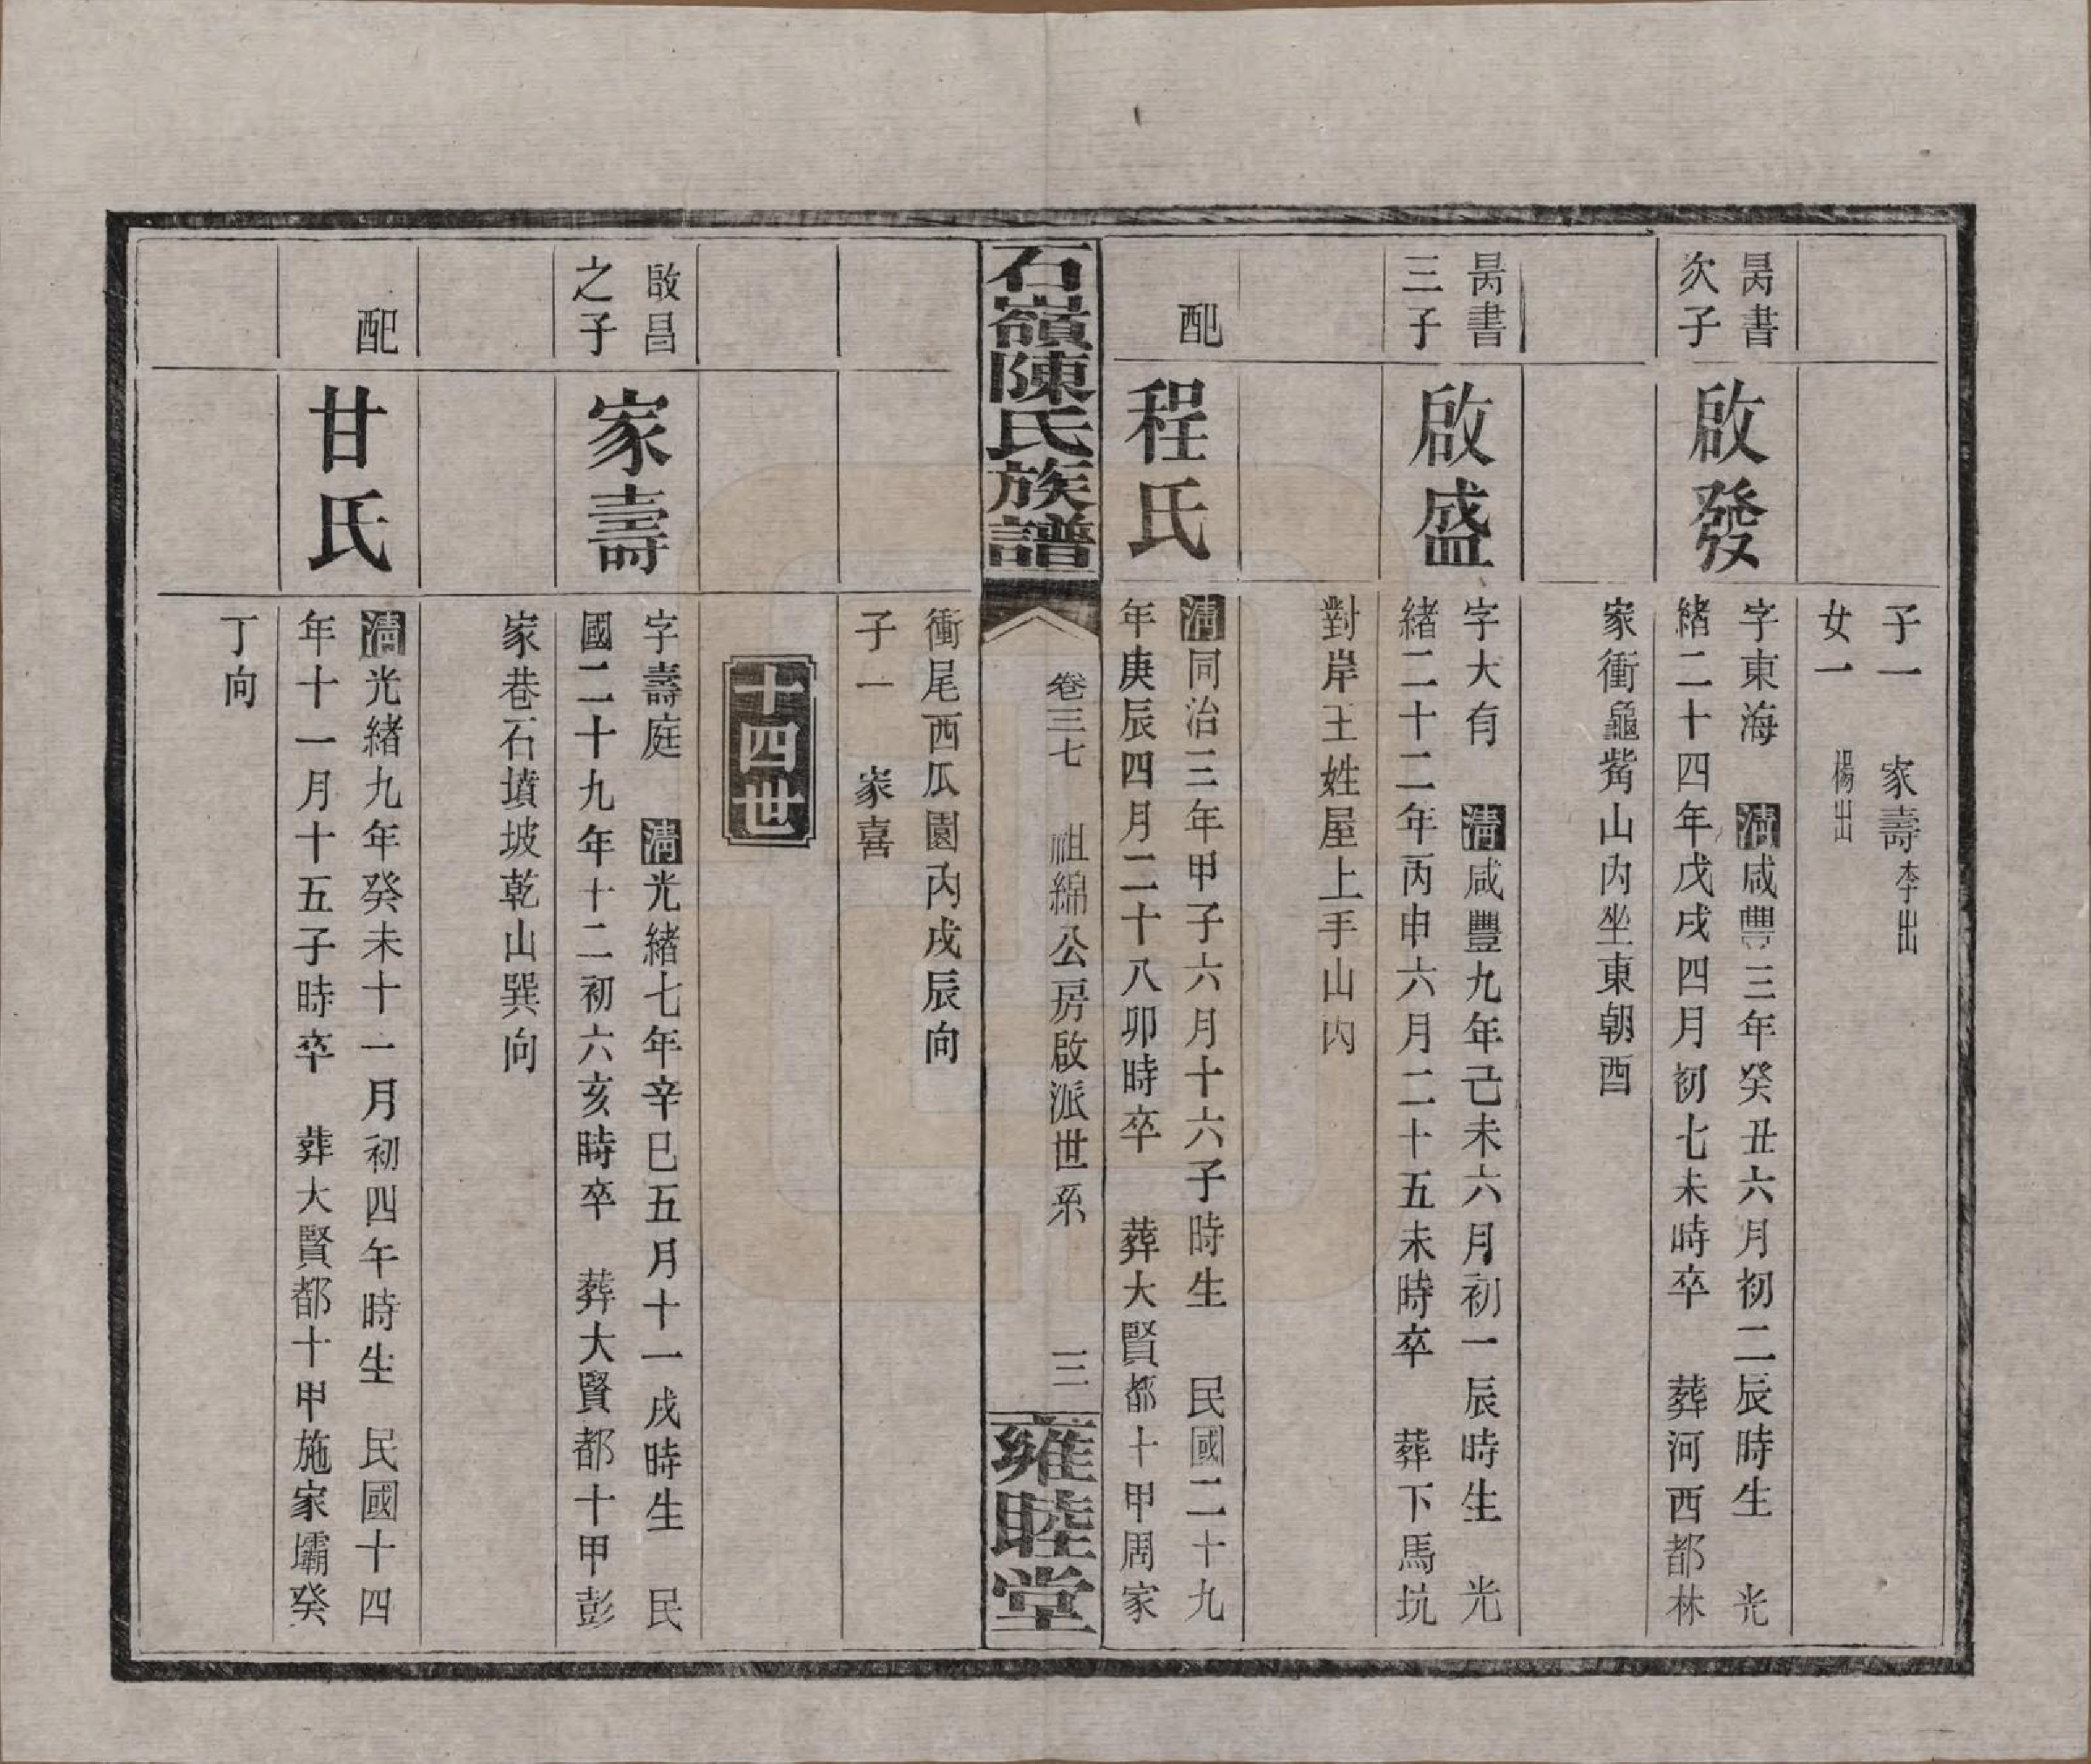 子一　家壽李出
女一　楊出
昺書
次子
啟發
字東海　清咸豐三年癸丑六月初二辰時生　光
緒二十四年戊戌四月初七未時卒　葬河西都林
家衝龜觜山內坐東朝酉
昺書
三子
啟盛
字大有　清咸豐九年己未六月初一辰時生　光
緒二十二年丙申六月二十五未時卒　葬下馬坑
對岸王姓屋上手山內
配
程氏
清同治三年甲子六月十六子時生　民國二十九
年庚辰四月二十八卯時卒　葬大賢都十甲周家
石嶺陳氏族譜
卷三七　祖綿公房啟派世系　三
雍睦堂
衝尾西瓜園內戌辰向
子一　家喜
十四世
啟昌
之子
家壽
字壽庭　清光緒七年辛巳五月十一戌時生　民
國二十九年十二初六亥時卒　葬大賢都十甲彭
家巷石墳坡乾山巽向
配
甘氏
清光緒九年癸未十一月初四午時生　民國十四
年十一月十五子時卒　葬大賢都十甲施家壩癸
丁向